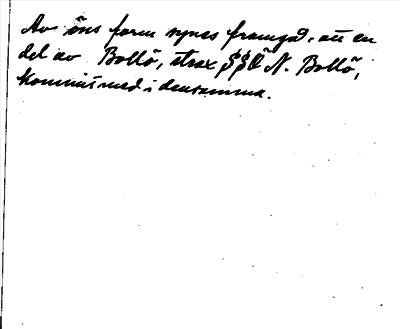 Av öns form synes framgå, att en
del av Bollö, strax SSO N. Bollö,
kommit med i densamma.